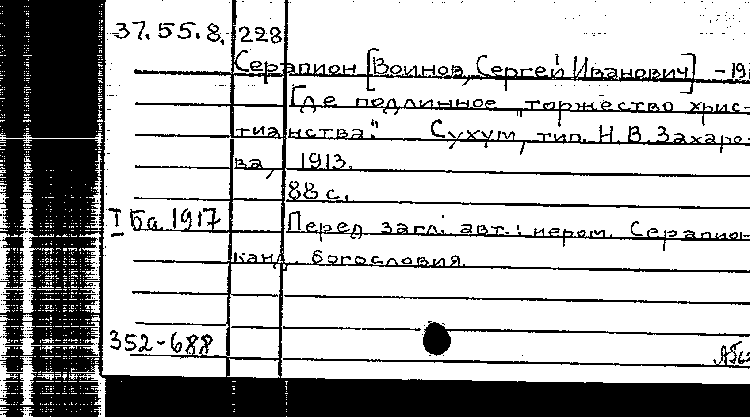 37.55.8. 228
Серапион [Воинов, Сергей Иванович] - 19
Где подлинное "торжество хрис-
тианства". Сухум, тип. Н.В.Захаро-
ва, 1913.
88 с.
I Ба 1917 Перед загл. авт.: иером. Серапион
канд. богословия.
352-688